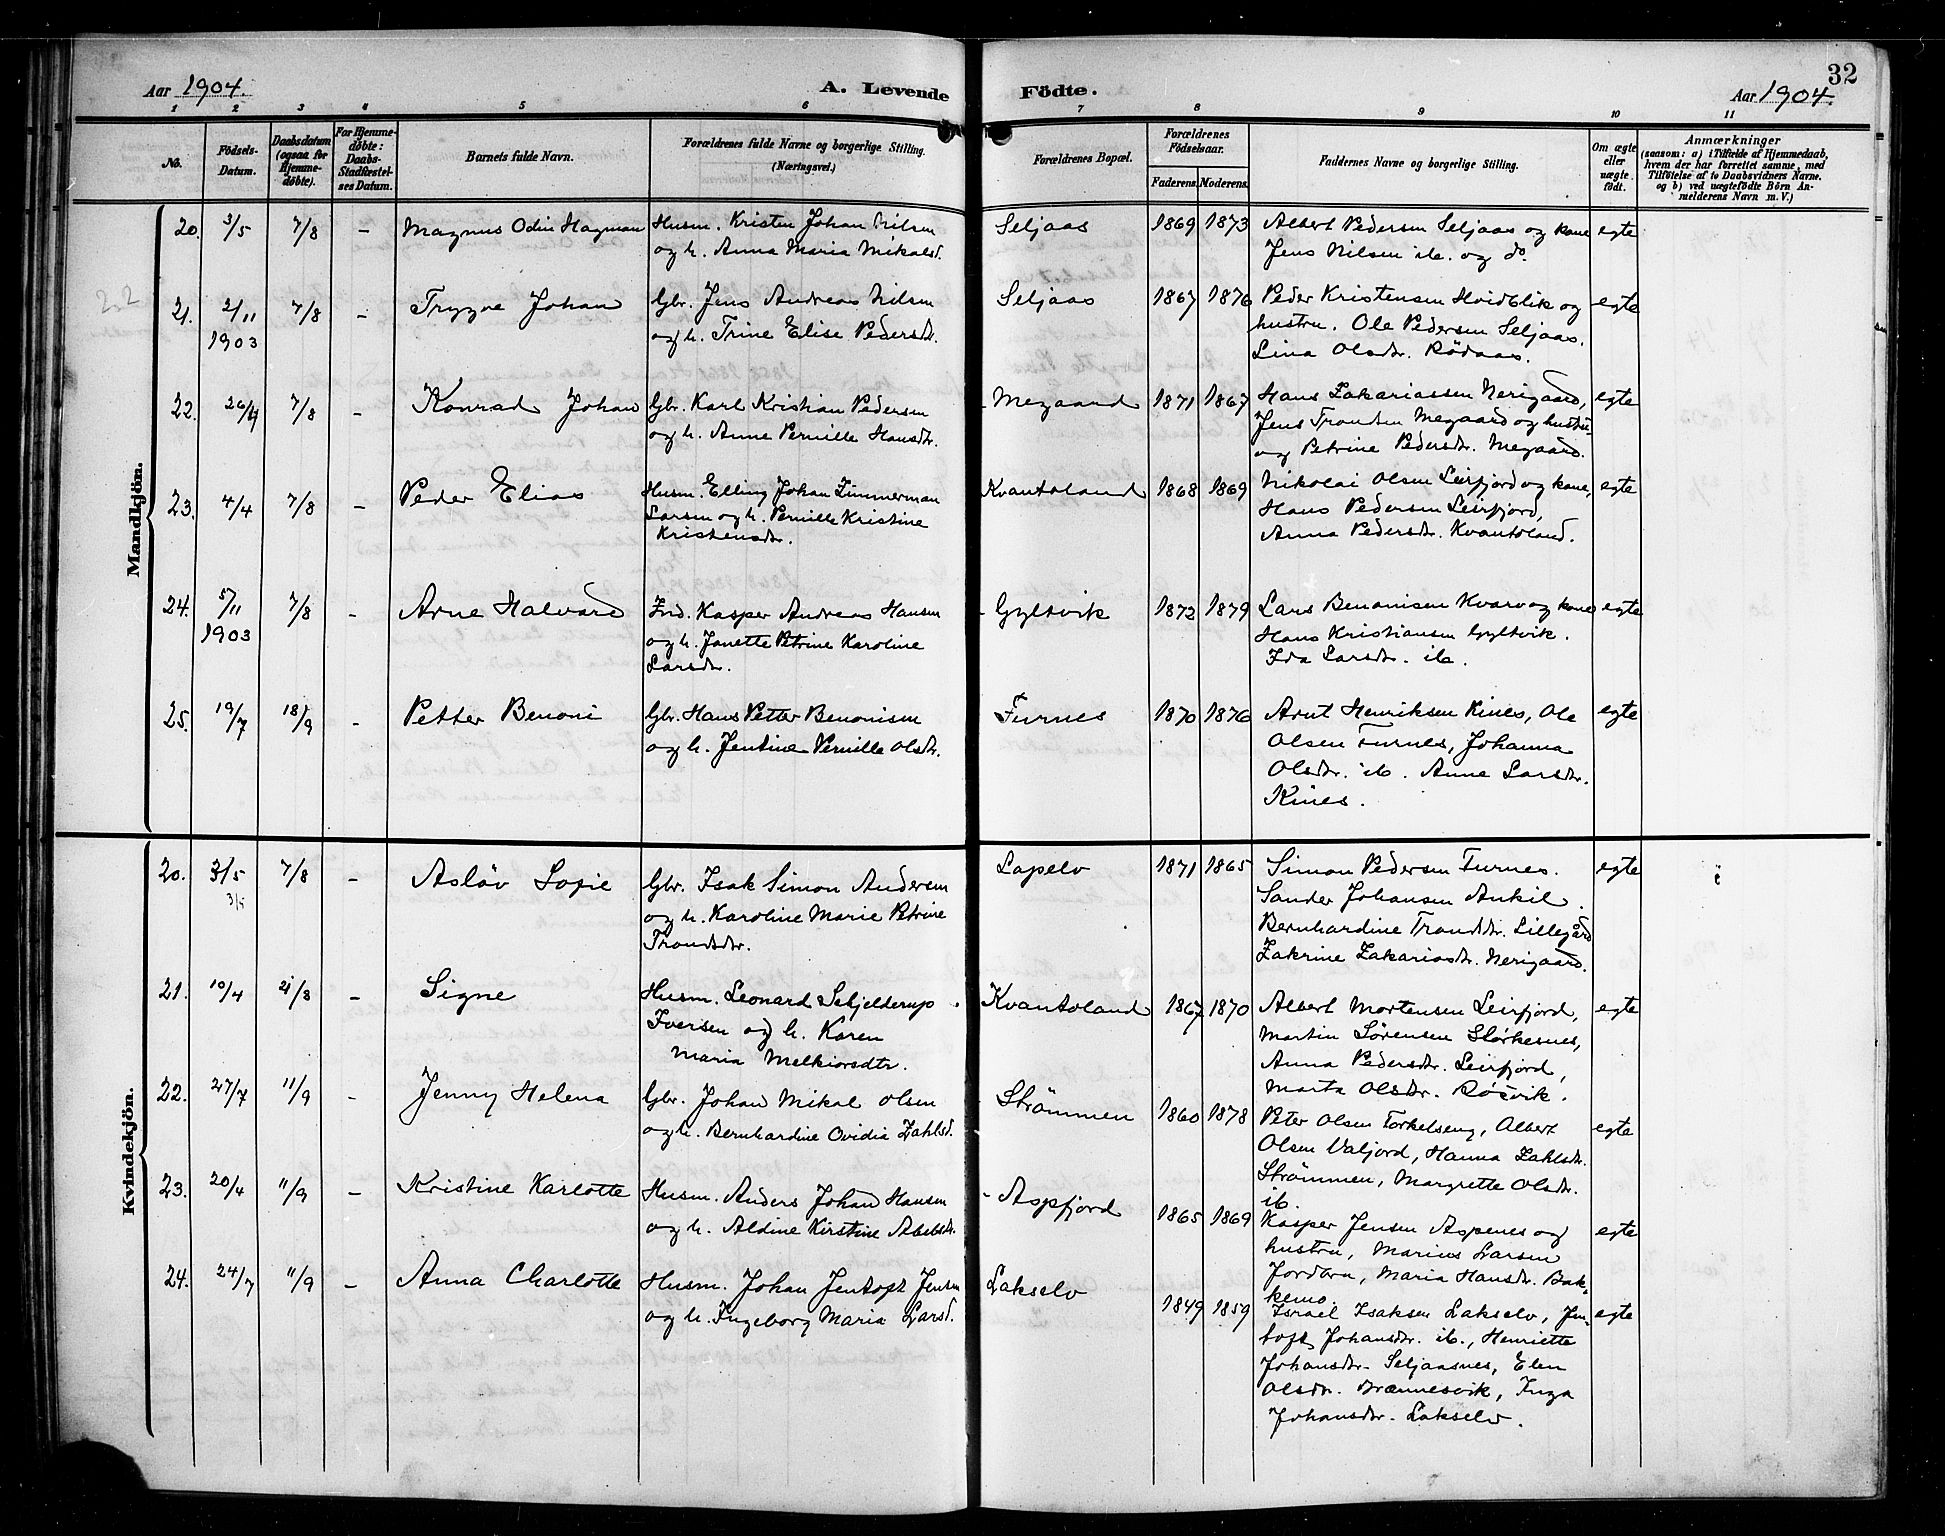 32
Aar 1904.
A. Levende Födte.
Aar 1904.
1 2 3 4 5 6 7 8 9 10 11
No.
Födsels-Datum.
Daabsdatum (ogsaa for Hjemme-döbte).
For Hjemme-döbte: Daabs-Stadfæstel-ses Datum.
Barnets fulde Navn.
Forældrenes fulde Navne og borgerlige Stilling.
(Næringsvei.)
Forældrenes Bopæl.
Forældrenes Födselsaar.
Faderens. Moderens.
Faddernes Navne og borgerlige Stilling.
Om ægte eller uægte födt.
Anmærkninger
(saasom: a) i Tilfælde af Hjemmedaab,
hvem der har forrettet samme, med
Tilföielse af to Daabsvidners Navne,
og b) ved uægtefödte Börn An-
melderens Navn m. V.)
Mandkjön.
20. 3/5 7/8 – Magnus Odin Hagman Husm. Kristen Johan Nilsen Seljaas 1869 1873 Albert Pedersen Seljaas og kone egte
og h. Anna Maria Mikalsd. Jens Nilsen ib. og do.
22
21. 2/11 7/8 – Trygve Johan Gbr. Jens Andreas Nilsen Seljaas 1867 1876 Peder Kristensen Hvidblik og egte
1903 og h. Trine Elise Pedersdtr. hustru. Ole Pedersen Seljaas.
Lina Olsdtr. Rödaas.
22. 26/4 7/8 – Konrad Johan Gbr. Karl Kristian Pedersen Megaard 1871 1867 Hans Zakariassen Nerigaard, egte
og h. Anne Pernille Hansdtr. Jens Trondsen Megaard og hustru
og Petrine Pedersdtr. Megaard.
23. 4/4 7/8 – Peder Elias Husm. Elling Johan Zimmerman Kvantoland 1868 1869 Nikolai Olsen Leirfjord og kone, egte
Larsen og h. Pernille Kristine Hans Pedersen Leirfjord,
Kristensdtr. Anna Pedersdtr. Kvantoland.
24. 5/11 7/8 – Arne Halvard Ind. Kasper Andreas Hansen Gyltvik 1872 1879 Lars Benonisen Kvarv og kone egte
1903 og h. Janette Petrine Karoline Hans Kristiansen Gyltvik.
Larsdtr. Ida Larsdtr. ib.
25. 19/7 18/9 – Petter Benoni Gbr. Hans Petter Benonisen Furnes 1870 1876 Arnt Henriksen Kines, Ole egte
og h. Jentine Pernille Olsdtr. Olsen Furnes, Johanna
Olsdtr. ib. Anne Larsdtr.
Kines.
Kvindekjön.
20. 3/5 7/8 – Asløv Sofie Gbr. Isak Simon Andersen Lapelv 1871 1865 Simon Pedersen Furnes. egte
3/5 og h. Karoline Marie Petrine Sander Johansen Ankil.
Trondsdtr. Bernhardine Trondsdtr. Lillegård
Zakrine Zakariasdtr. Nerigaard.
21. 10/4 21/8 – Signe Husm. Leonard Schjelderup Kvantoland 1867 1870 Albert Mortensen Leirfjord, egte
Iversen og h. Karen Martin Sørensen Storkesnes,
Maria Melkiorsdtr. Anna Pedersdtr. Leirfjord,
Marta Olsdtr. Rösvik.
22. 27/7 11/9 – Jenny Helena Gbr. Johan Mikal Olsen Strömmen 1860 1878 Peter Olsen Torkelseng, Albert egte
og h. Bernhardine Ovidia Zahlsd. Olsen Valjord, Hanna Zahlsdtr.
Strömmen, Margrette Olsdtr.
ib.
23. 20/4 11/9 – Kristine Karlotte Husm. Anders Johan Hansen Aspfjord 1865 1869 Kasper Jensen Aspenes og egte
og h. Aldine Kirstine Abelsdtr. hustru, Marius Larsen
Jordbru, Maria Hansdtr. Bak-
kemo.
24. 24/7 11/9 – Anna Charlotte Husm. Johan Jentoft Jensen Lakselv 1849 1859 Israel Isaksen Lakselv, Jen- egte
og h. Ingeborg Maria Larsd. toft Johansdtr. ib., Henriette
Johansdtr. Seljaasnes, Elen
Olsdtr. Brænnesvik, Inga
Johansdtr. Lakselv.